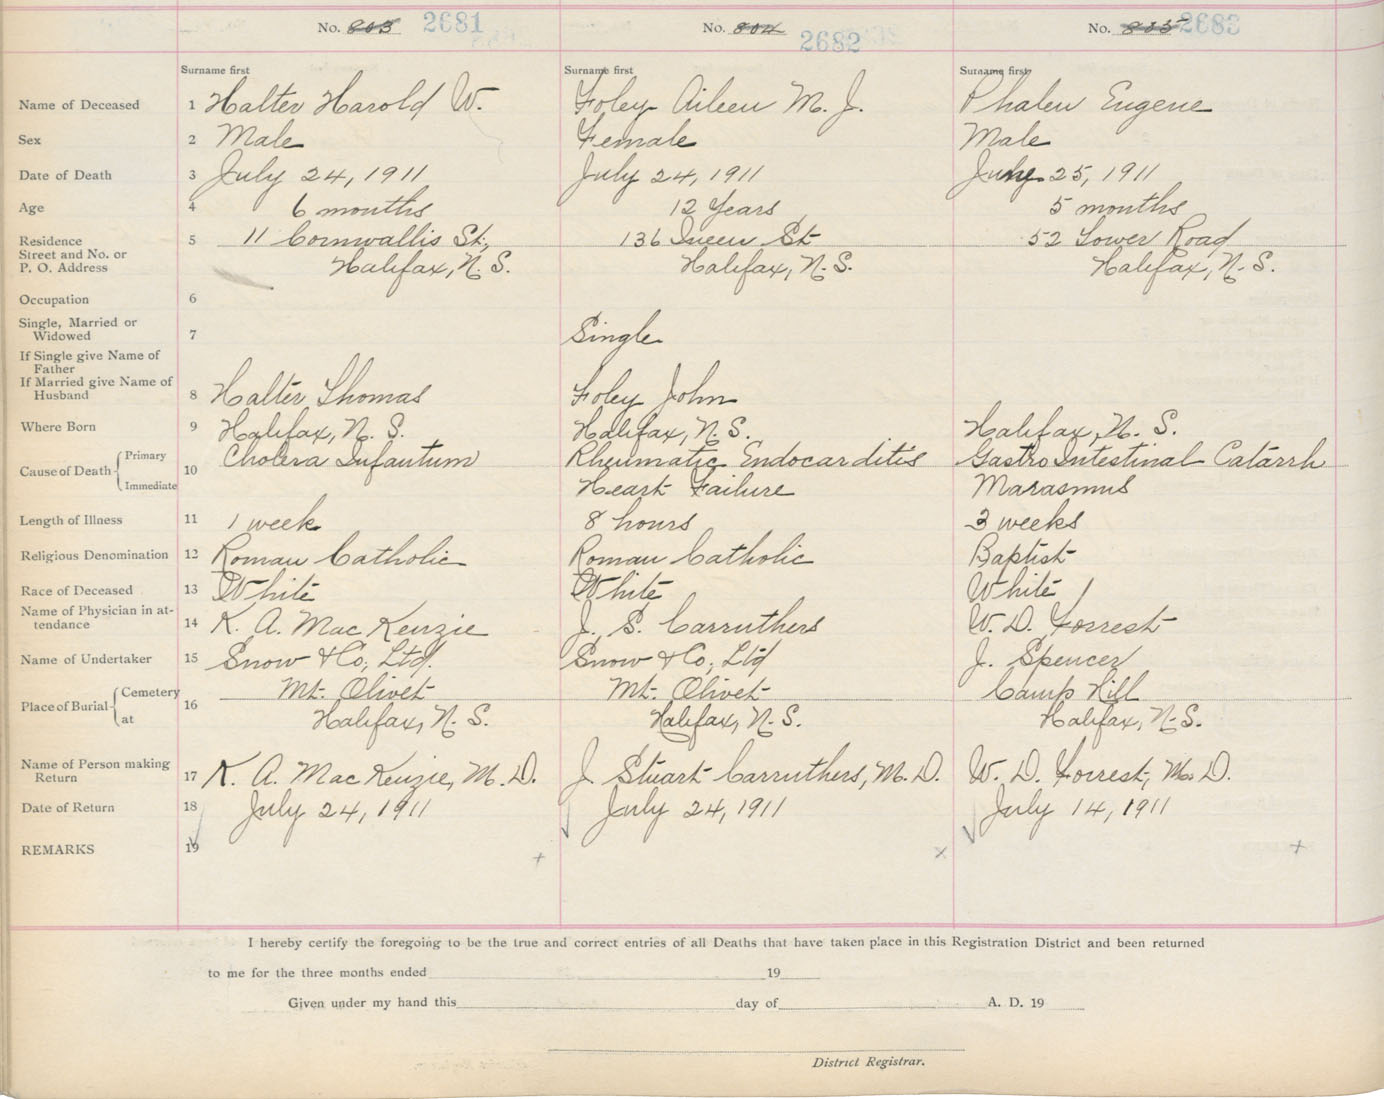 No. 803 2681 No. 804 2682 No. 805 2683
Surname first Surname first Surname first
Name of Deceased 1 Halter Harold W. Foley Aileen M. J. Phalen Eugene
Sex 2 Male Female Male
Date of Death 3 July 24, 1911 July 24, 1911 June 25, 1911
Age 4 6 months 12 Years 5 months
Residence 5 11 Cornwallis St., 136 Queen St 52 Lower Road
Street and No. or
P. O. Address Halifax, N. S. Halifax, N. S. Halifax, N. S.
Occupation 6
Single, Married or
Widowed 7 Single
If Single give Name of
Father
If Married give Name of
Husband 8 Halter Thomas Foley John
Where Born 9 Halifax, N. S. Halifax, N. S. Halifax, N. S.
Cause of Death Primary 10 Cholera Infantum Rheumatic Endocarditis Gastro Intestinal Catarrh
Immediate Heart Failure Marasmus
Length of Illness 11 1 week 8 hours 3 weeks
Religious Denomination 12 Roman Catholic Roman Catholic Baptist
Race of Deceased 13 White White White
Name of Physician in at-
tendance 14 K. A. MacKenzie J. S. Carruthers W. D. Forrest
Name of Undertaker 15 Snow & Co., Ltd. Snow & Co., Ltd J. Spencer
Place of Burial Cemetery 16 Mt. Olivet Mt. Olivet Camp Hill
at Halifax, N. S. Halifax, N. S. Halifax, N. S.
Name of Person making
Return 17 K. A. MacKenzie, M. D. J. Stuart Carruthers, M. D. W. D. Forrest, M. D.
Date of Return 18 July 24, 1911 July 24, 1911 July 14, 1911
REMARKS 19
I hereby certify the foregoing to be the true and correct entries of all Deaths that have taken place in this Registration District and been returned
to me for the three months ended 19
Given under my hand this day of A. D. 19
District Registrar.